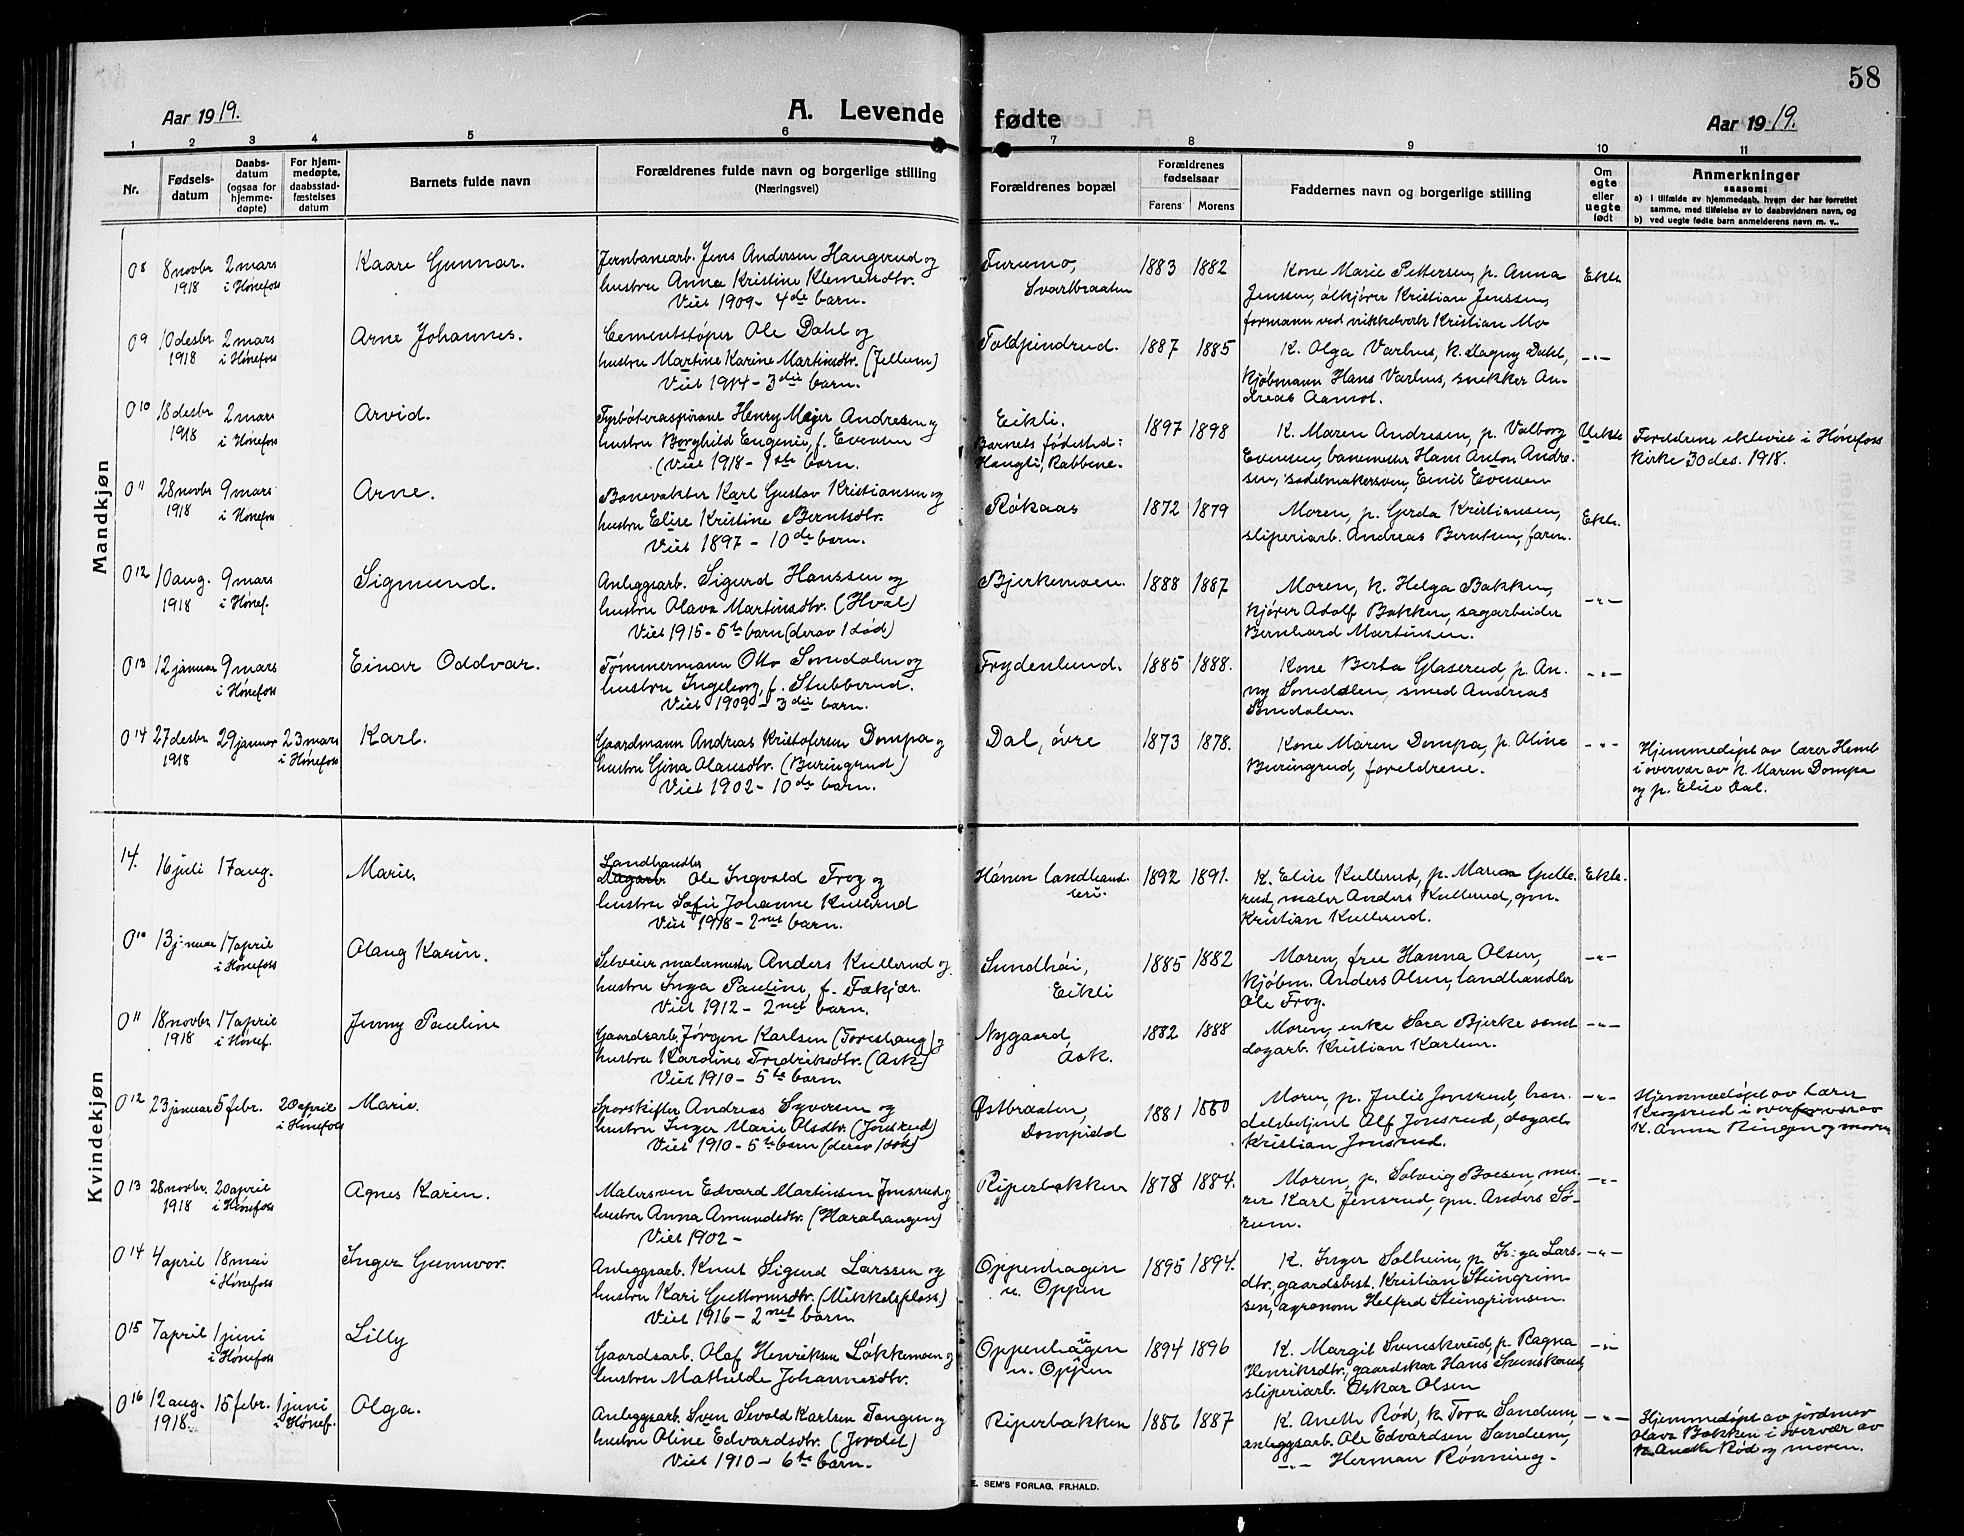 58
Aar 1919.
A. Levende fødte
Aar 1919.
1 2 3 4 5 6 7 8 9 10 11
Nr.
Fødselsdatum
Daabsdatum (ogsaa for hjemmedøpte)
For hjemmedøpte, daabsstadfæstelses datum
Barnets fulde navn
Forældrenes fulde navn og borgerlige stilling
(Næringsvei)
Forældrenes bopæl
Forældrenes fødselsaar
Farens Morens
Faddernes navn og borgerlige stilling
Om egte eller uegte født
Anmerkninger
saasom:
a) I tilfælde av hjemmedaab, hvem der har forrettet samme, med tilføielse av to daabsvidners navn, og
b) ved uegte fødte barn anmelderens navn m. v..
Mandkjøn
08 8 novbr 1918 2 mars i Hønefoss
Kaare Gunnar.
Jernbanearb. Jens Andersen Haugerud og
hustru Anna Kristine Klemetsdtr.
Viet 1909 - 4de barn.
Furumo,
Svartbraaten
1883 1882
Kone Marie Pettersen, p. Anna
Jenssen, ølkjører Kristian Jenssen,
formann ved Kristian Mo
Ekte
09 10 desbr 1918 2 mars i Hønefoss
Arne Johannes.
Cementstøper Ole Dahl og
hustru Martine Karine Martinsdtr. (Jellum)
Viet 1914 - 3die barn.
1887 1885
K. Olga Varhus, k. Dagny Dahl,
kjøbmann Hans Varhus, snekker An-
dreas Aamot.
-"-
010 18 desbr 1918 2 mars i Hønefoss
Arvid.
Fyrbøteraspirant Henry Meyer Andresen og
hustru Borghild Eugenie, f. Evensen
(Viet 1918 - 1ste barn.
Eikli.
Barnets fødested:
Haugli, Rabbene.
1897 1898
K. Maren Andresen, p. Valborg
Evensen, banemester Hans Anton Andre-
sen, sadelmakersven, Emil Evensen
Uekte
Foreldrene ekteviet i Hønefoss
kirke 30 des. 1918.
011 28 novbr 1918 9 mars i Hønefoss
Arne.
Banevakter Karl Gustav Kristiansen og
hustru Elise Kristine Berntsdtr.
Viet 1897 - 10de barn.
Røkaas
1872 1879
Moren, p. Gerda Kristiansen,
sliperiarb. Andreas Berntsen, faren.
Ekte.
012 10 aug. 1918 9 mars i Hønef.
Sigmund.
Anleggsarb. Sigurd Hanssen og
hustru Olava Martinsdtr. (Hval)
Viet 1915 - 5te barn (derav 1 død)
Bjerkemoen.
1888 1887
Moren, k. Helga Bakken,
kjører Adolf Bakken, sagarbeider
Bernhard Martinsen.
-"-
013 12 januar 9 mars i Hønefoss
Einar Oddvar.
Tømmermann Otto Snedalen og
hustru Ingeborg, f. Stubberud.
Viet 1909 - 3die barn.
Frydenlund.
1885 1888.
Kone Berta Glaserud, p. An-
ny Snedalen, smed Andreas
Snedalen.
-"-
014 27 desbr 1918 29 januar 23 mars i Hønefoss
Karl.
Gaardmann Andreas Kristofersen Dompa og
hustru Gina Olausdtr. (Buringrud)
Viet 1902 - 10de barn.
Dal, øvre
1873 1878.
Kone Maren Dompa, p. Oline
Buringrud, foreldrene.
-"-
Hjemmedøpt av lærer
i overvær av k. Maren Dompa
og p. Elise Dal.
Kvindekjøn
14. 16 juli 17 aug.
Marie.
Landhandler
Dagarb. Ole Ingvald Frog og
hustru Sofie Johanne Kullerud
Viet 1918 - 2net barn.
Hønen landhand-
leri.
1892 1891.
K. Elise Kullerud, p. Marie Gulle-
rud, maler Anders Kullerud, gm.
Kristian Kullerud.
Ekte.
010 13 januar 17 april i Hønefoss
Olaug Karin.
Selveier malermester Anders Kullerud og
hustru Inga Pauline, f. Fækjær.
Viet 1912 - 2net barn.
Sundhøi,
Eikli
1885 1882
Moren, frue Hanna Olsen,
kjøbm. Anders Olsen, landhandler
Ole Frog.
-"-
011 18 novbr 1918 17 april i Hønef.
Jenny Pauline
Gaardsarb. Jørgen Karlsen (Toreshaug) og
hustru Karoline Fredriksdtr. (Ask)
Viet 1910 - 5te barn.
Nygaard,
Ask.
1882 1888
Moren, enke Sara Bjerke samt
dagarb. Kristian Karlsen.
-"-
012 23 januar 5 febr. 20 april i Hønefoss
Marie.
Sporskifter Andreas Syversen og
hustru Inger Marie Olsdtr. (Jonsrud)
Viet 1910 - 5te barn (derav 1 død)
Østbraaten,
Dompidal
1881 1880
Moren, p. Julie Jonsrud, han-
delsbetjent Alf Jonsrud, dagarb.
Kristian Jonsrud.
-"-
Hjemmedøpt av lærer
Krogsrud i overvær av
k. Anna Ringen og moren
013 28 novbr. 1918 20 april i Hønefoss
Agnes Karin.
Malersven Edvard Martinsen Jensrud og
hustru Anna Amundsdtr. (Harahaugen)
Viet 1902 -
Riperbakken
1878 1884.
Moren, p. Solveig Boesen, mu-
rer Karl Jensrud, gm. Anders Sø-
rum.
-"-
014 4 april 18 mai i Hønefoss
Inger Gunnvor.
Anleggsarb. Knut Sigurd Larssen og
hustru Kari Guttormsdtr. (Mikkelsplass)
Viet 1916 - 2net barn.
Oppenhagen
u. Oppen
1895 1894.
K. Inger Solheim, p. Inga Lars-
dtr, gaardsbest. Kristian Steingrim-
sen, agronom Helfred Steingrimsen.
-"-
015 7 april 1 juni i Hønefoss
Lilly
Gaardsarb. Olaf Henriksen Løkkemoen og
hustru Mathilde Johannesdtr.
Oppenhagen
u. Oppen
1894 1896
K. Margit Svenskerud, p. Ragna
Henriksdtr., gaardskar Hans Svenskerud,
sliperiarb. Oskar Olsen
-"-
016 12 aug. 1918. 15 febr. 1 juni i Hønef.
Olga.
Anleggsarb. Sven Sevald Karlsen Tangen og
hustru Oline Edvardsdtr. (Jordet)
Viet 1910 - 6te barn.
Riperbakken
1886 1887
K. Anette Rød, k. Tora Sandum,
anleggsarb. Ole Edvardsen Sandum,
-"- Herman Rønning.
-"-
Hjemmedøpt av jordmor
Olava Bakken i overvær av
k. Anette Rød og moren.
E. SEM'S FORLAG, FR.HALD.